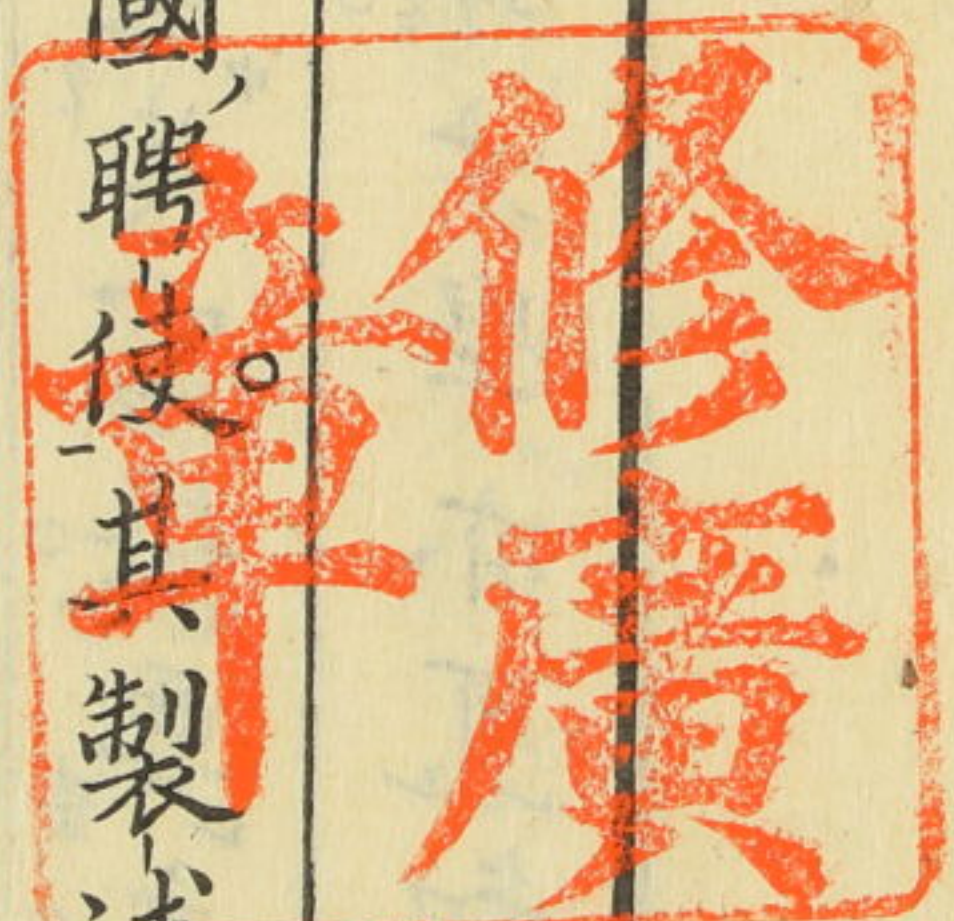 修廣
章
國聘使。其製